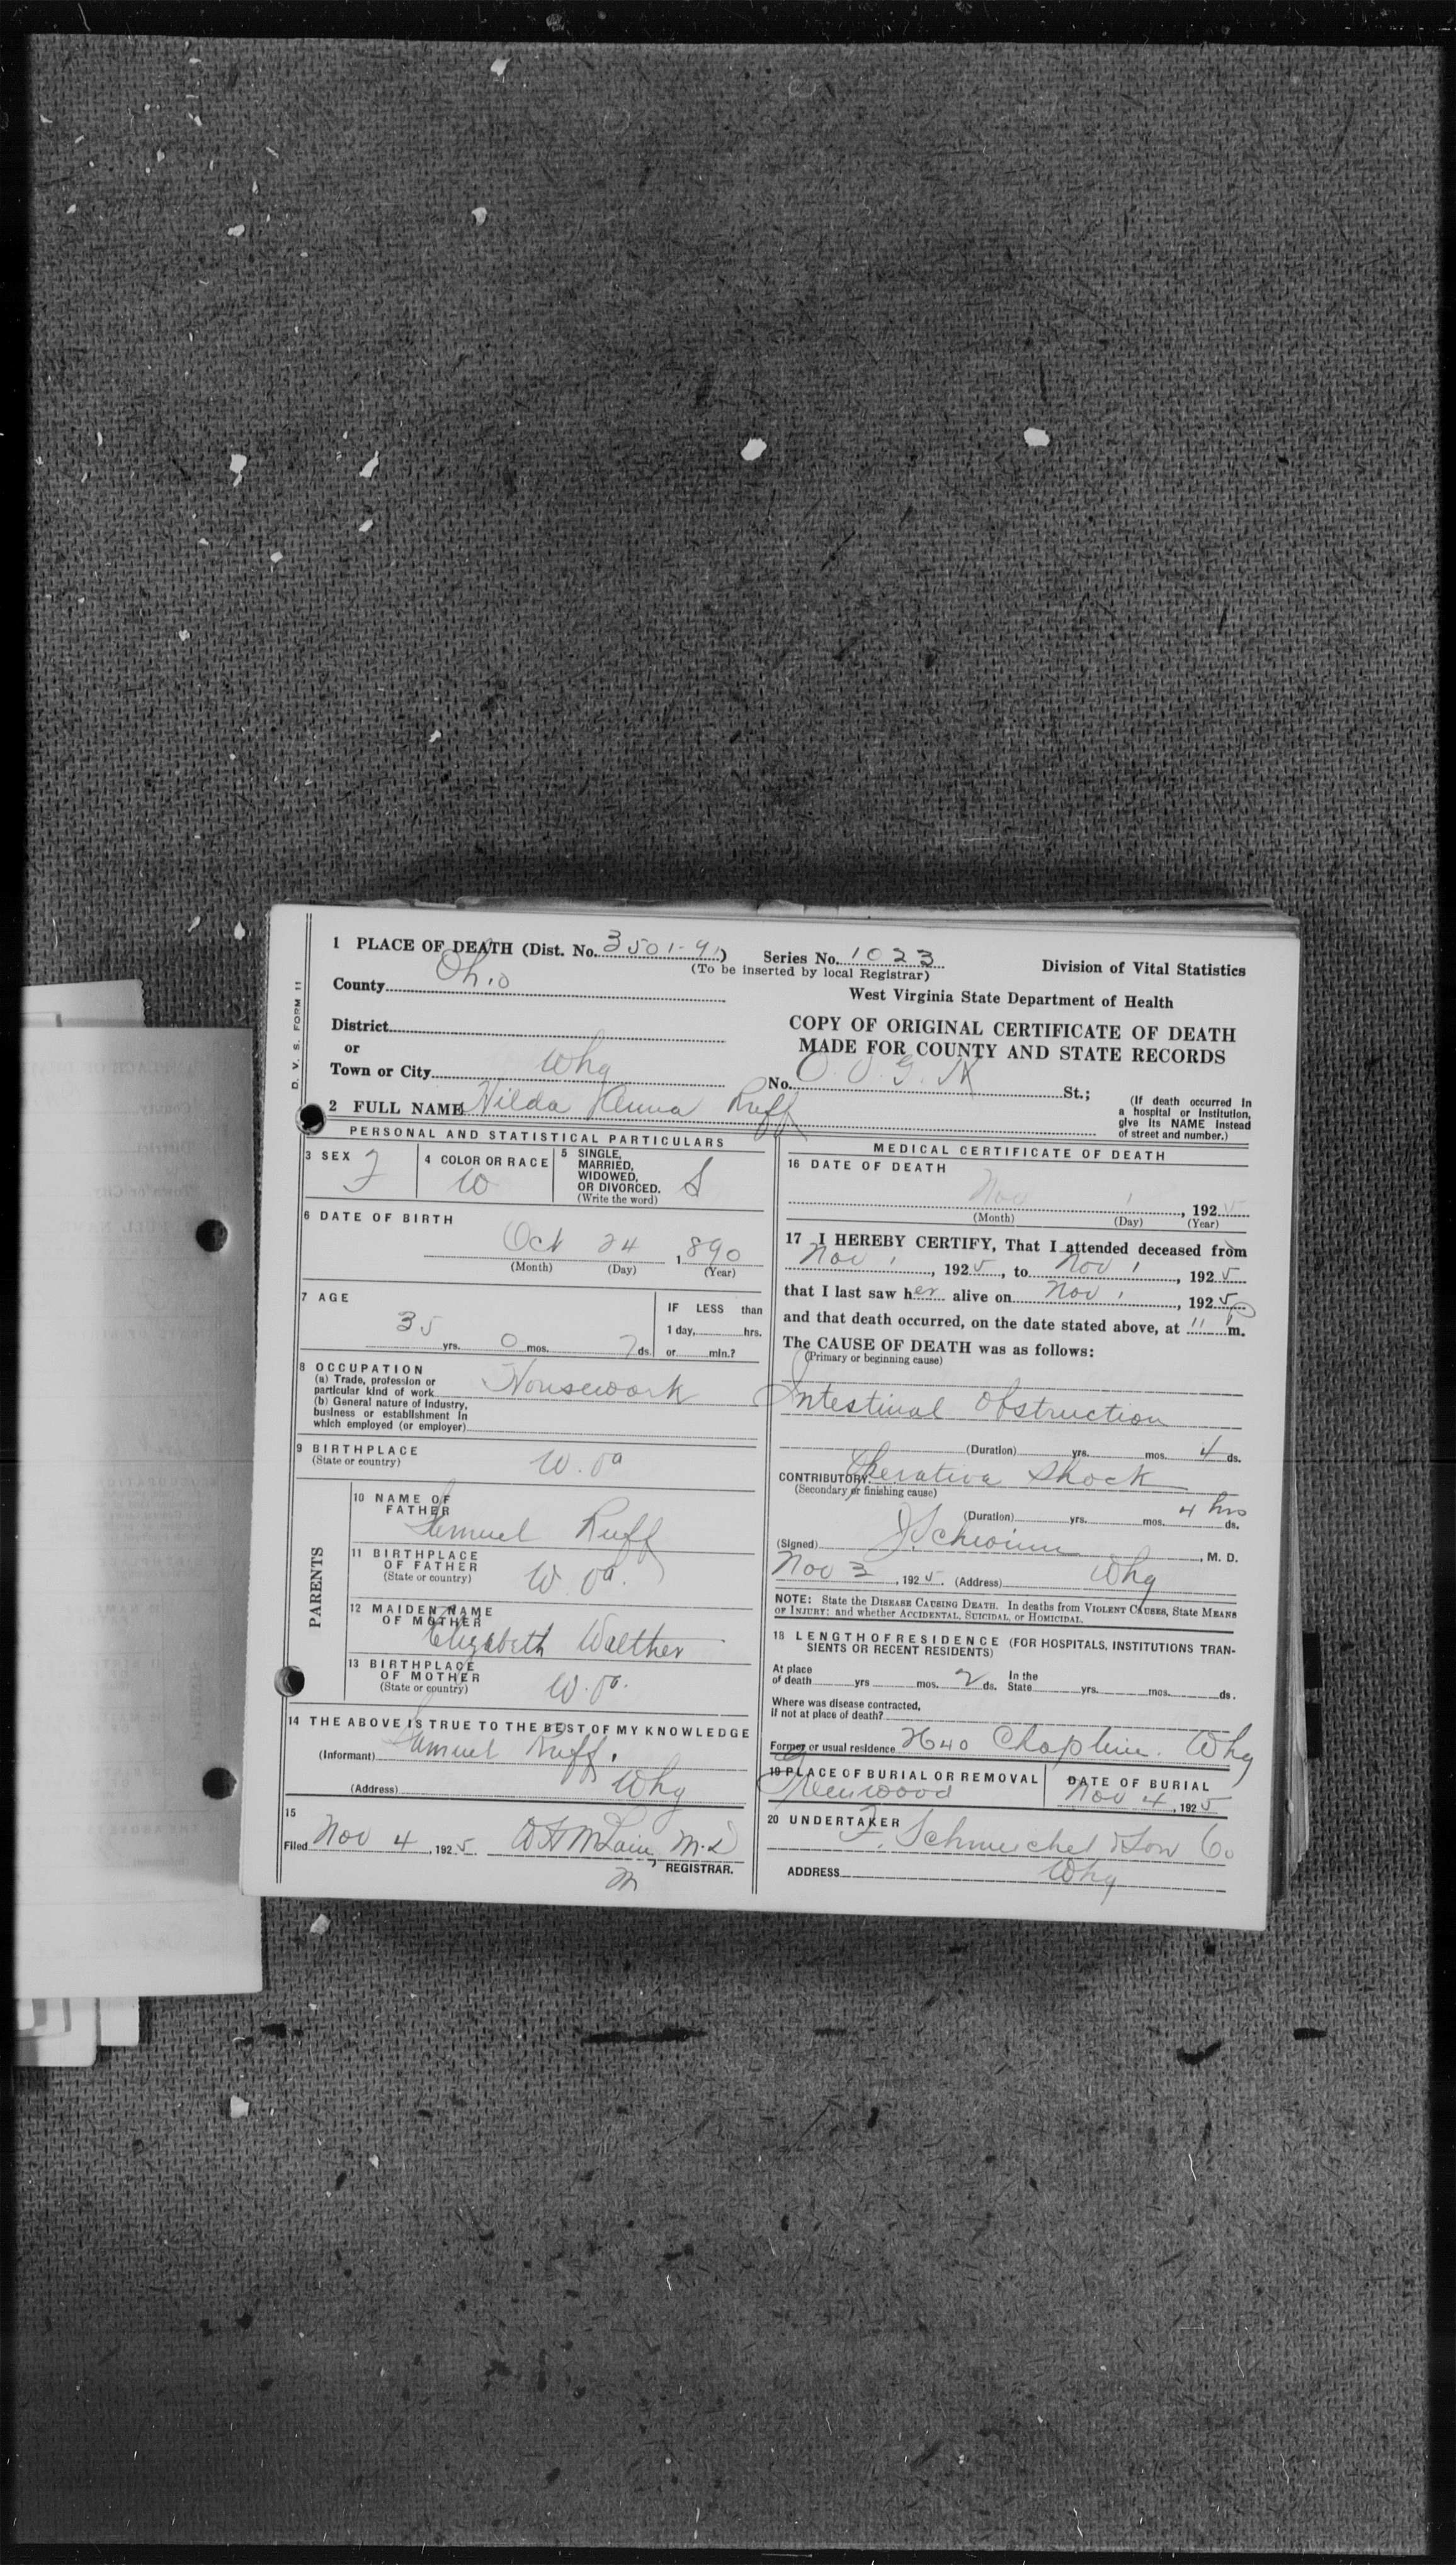 D. V. S. FORM 11
1 PLACE OF DEATH (Dist. No. 3501-91) Series No. 1023
(To be inserted by local Registrar)
Division of Vital Statistics
County Ohio
West Virginia State Department of Health
District
or
Town or City Whg
COPY OF ORIGINAL CERTIFICATE OF DEATH
MADE FOR COUNTY AND STATE RECORDS
No. O. V. G. H St.;
(If death occurred in
a hospital or Institution,
give its NAME instead
of street and number.)
2 FULL NAME Hilda Anna Ruff
PERSONAL AND STATISTICAL PARTICULARS
3 SEX F
4 COLOR OR RACE W
5 SINGLE,
MARRIED,
WIDOWED,
OR DIVORCED.
(Write the word)
S
6 DATE OF BIRTH
Oct 24 1890
(Month) (Day) (Year)
7 AGE
35 yrs. 0 mos. 7 ds.
IF LESS than
1 day, hrs.
or min.?
8 OCCUPATION
(a) Trade, profession or
particular kind of work Housework
(b) General nature of Industry,
business or establishment in
which employed (or employer)
9 BIRTHPLACE
(State or country) W. Va
PARENTS
10 NAME OF
FATHER Samuel Ruff
11 BIRTHPLACE
OF FATHER
(State or country) W. Va.
12 MAIDEN NAME
OF MOTHER Elizabeth Walther
13 BIRTHPLACE
OF MOTHER
(State or country) W. Va.
14 THE ABOVE IS TRUE TO THE BEST OF MY KNOWLEDGE
(Informant) Samuel Ruff.
(Address) Whg
15
Filed Nov 4, 1925. W H McLain, M.D
REGISTRAR.
M
MEDICAL CERTIFICATE OF DEATH
16 DATE OF DEATH
Nov 1, 1925
(Month) (Day) (Year)
17 I HEREBY CERTIFY, That I attended deceased from
Nov 1, 1925, to Nov 1, 1925
that I last saw her alive on Nov 1, 1925
and that death occurred, on the date stated above, at 11 P m.
The CAUSE OF DEATH was as follows:
(Primary or beginning cause)
Intestinal Obstruction
(Duration) yrs. mos. 4 ds.
CONTRIBUTORY Operative Shock
(Secondary or finishing cause)
(Duration) yrs. mos. 4 hrs ds.
(Signed) J Schwinn, M. D.
Nov 3, 1925. (Address) Whg
NOTE: State the DISEASE CAUSING DEATH. In deaths from VIOLENT CAUSES, State MEANS
OF INJURY; and whether ACCIDENTAL, SUICIDAL, or HOMICIDAL.
18 LENGTH OF RESIDENCE (FOR HOSPITALS, INSTITUTIONS TRAN-
SIENTS OR RECENT RESIDENTS)
At place
of death yrs mos. 2 ds.
In the
State yrs. mos. ds.
Where was disease contracted,
if not at place of death?
Former or usual residence 2640 Chapline. Whg
19 PLACE OF BURIAL OR REMOVAL
Greenwood
DATE OF BURIAL
Nov 4, 1925
20 UNDERTAKER
F. Schmeichel & Son Co
ADDRESS Whg